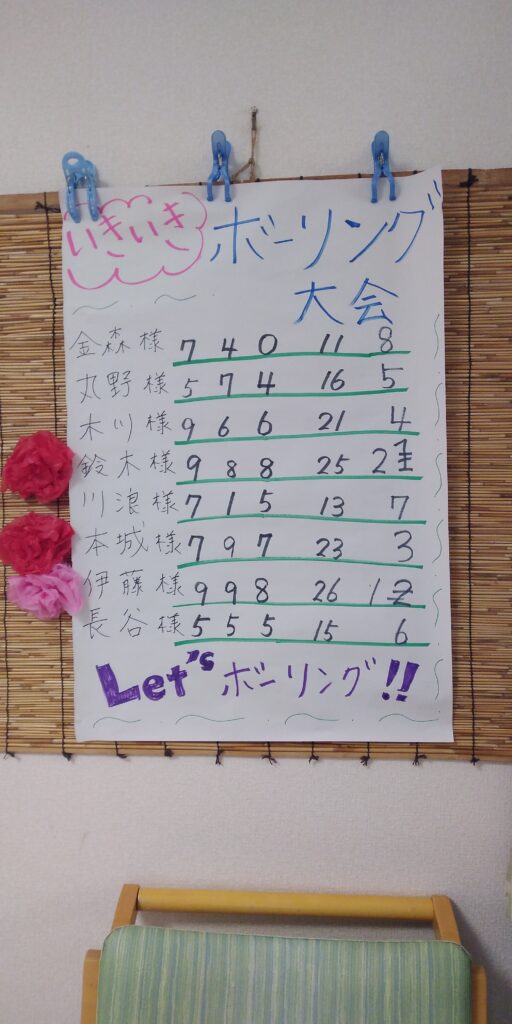 いきいき ボーリング
大会
金森様 7 4 0 11 8
丸野様 5 7 4 16 5
木川様 9 6 6 21 4
鈴木様 9 8 8 25 2
川浪様 7 1 5 13 7
本城様 7 9 7 23 3
伊藤様 9 9 8 26 1
長谷様 5 5 5 15 6
Let's ボーリング!!